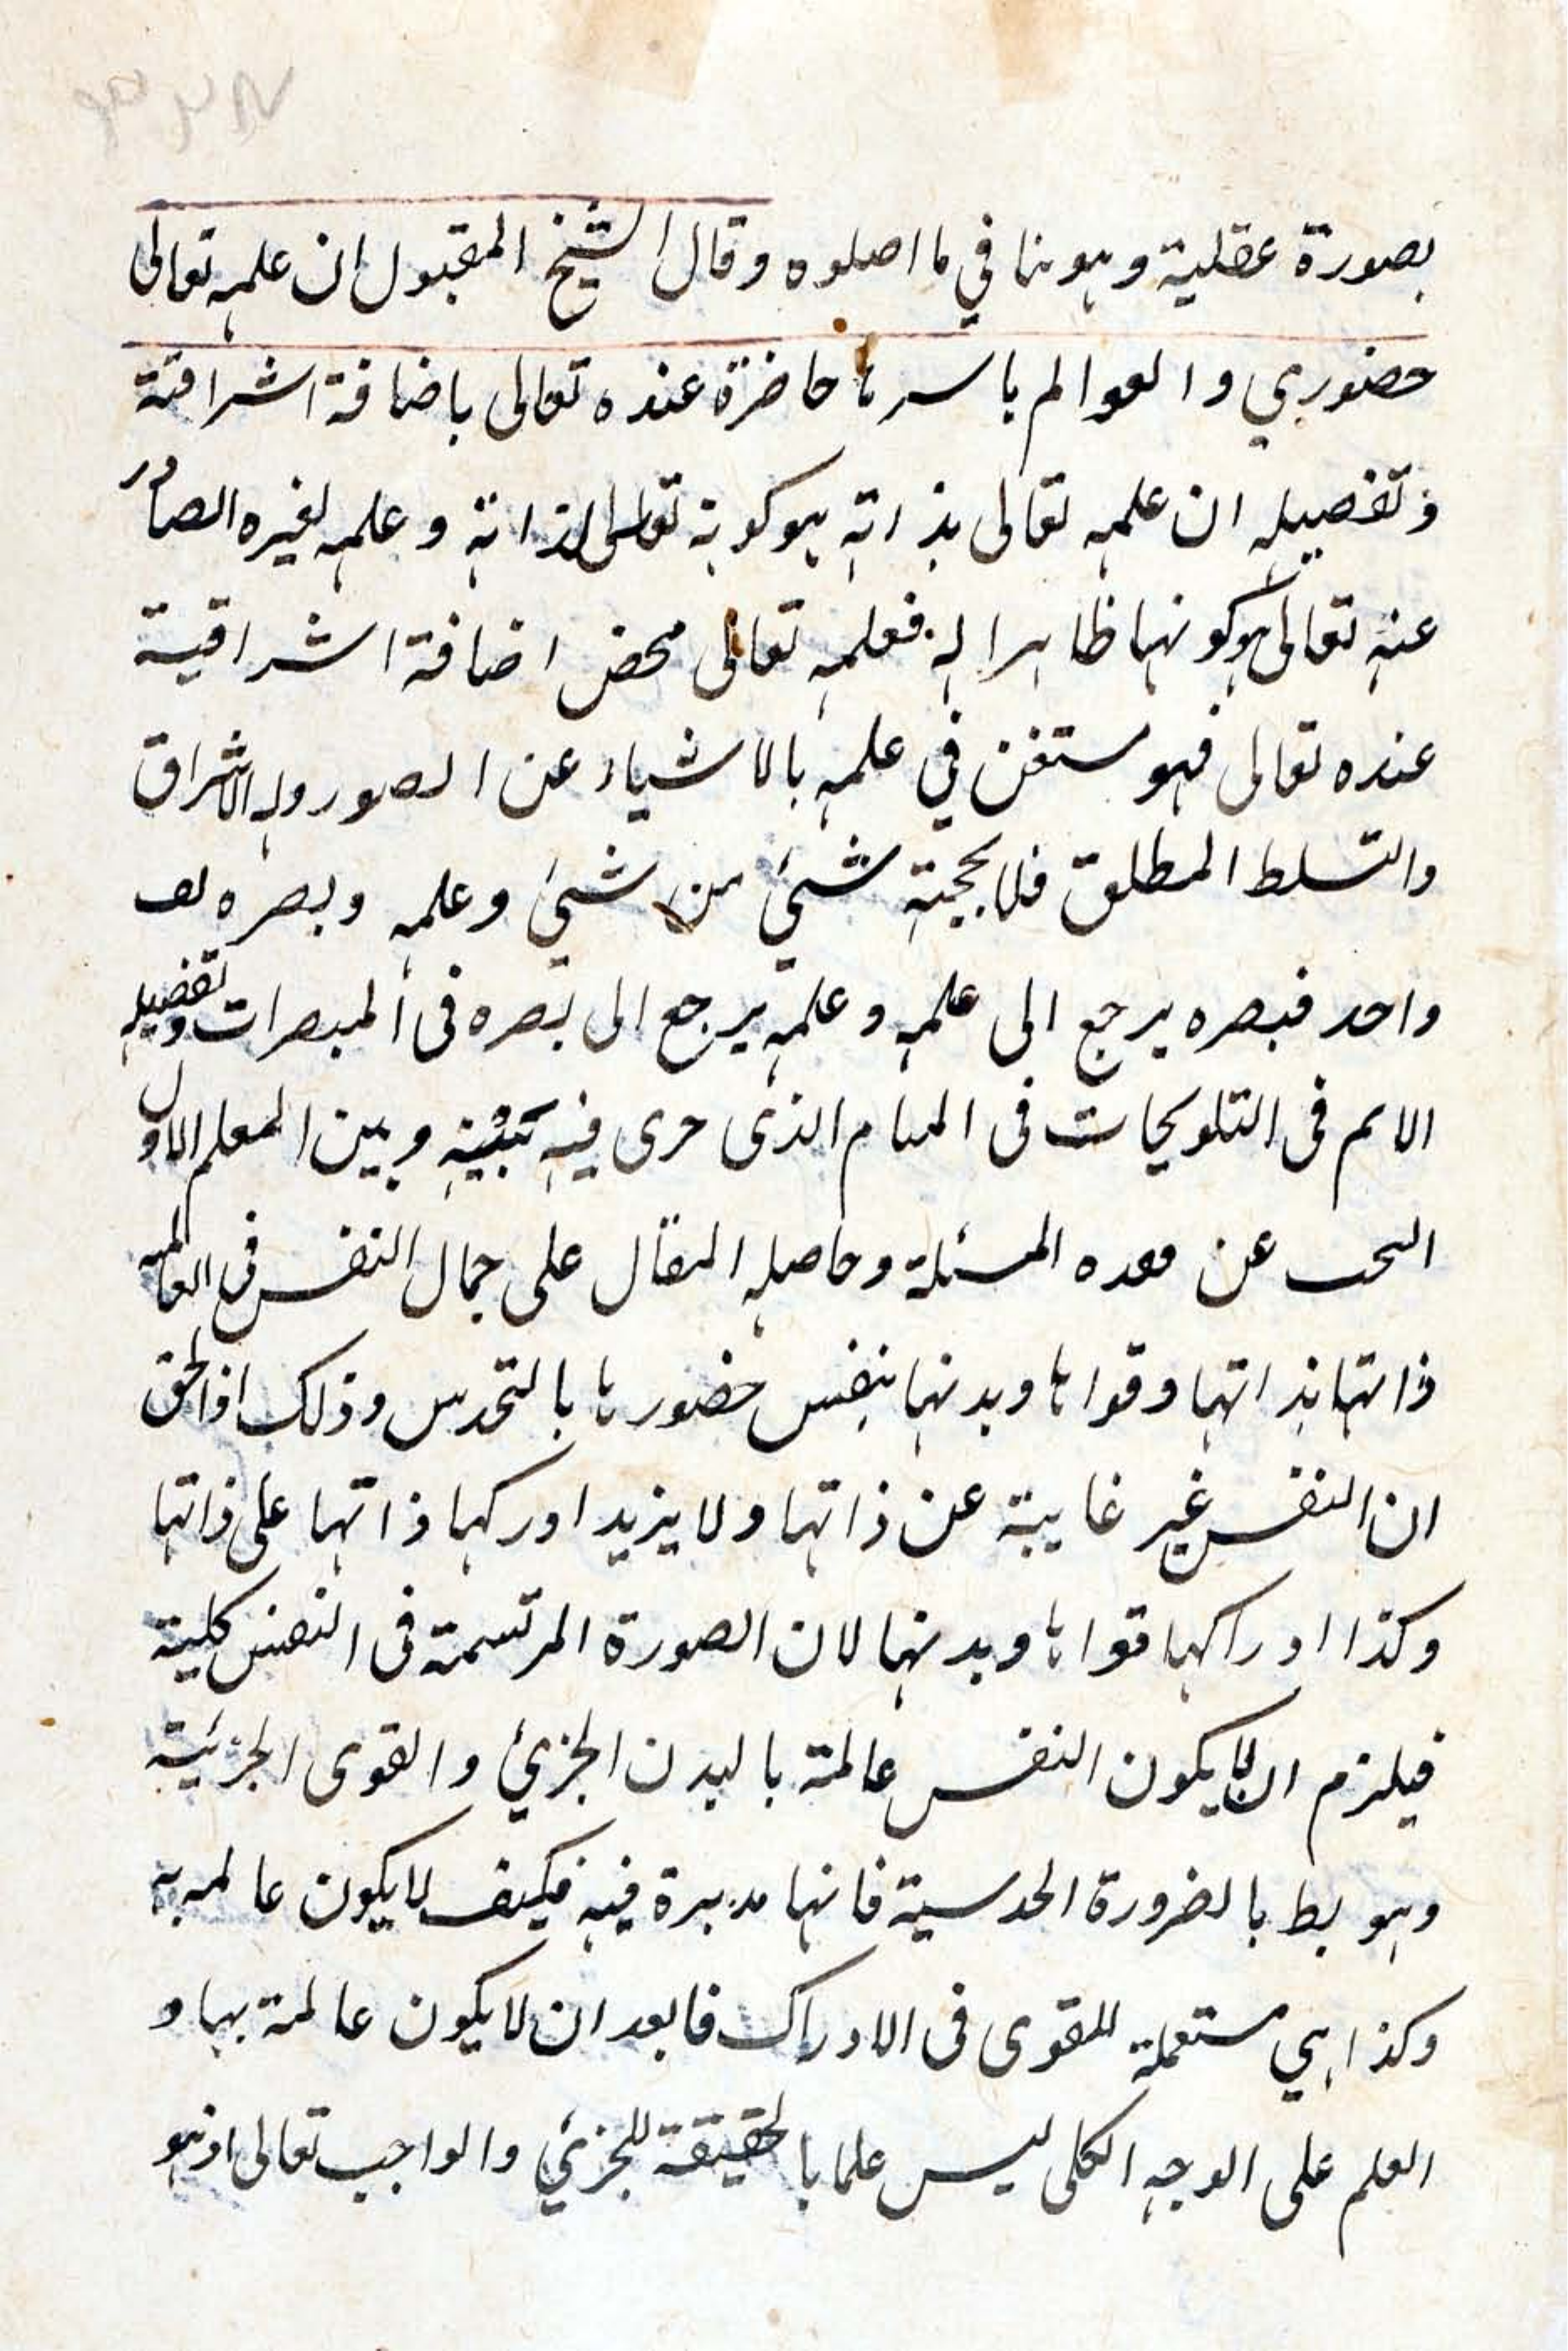 بصورة عقلية وهو ينافي ما اصلوه وقال الشيخ المقبول ان علمه تعالى
حضوري والعوالم باسرها حاضرة عنده تعالى باضافة اشراقية
وتفصيله ان علمه تعالى بذاته هو كونه تعالى لذاته وعلمه لغيره الصادر
عنه تعالى هو كونها ظاهرا له فعلمه تعالى محض اضافة اشراقية
عنده تعالى فهو مستغن في علمه بالاشياء عن الصور وله الاشراق
والتسلط المطلق فلا يحجبه شيء من شيء وعلمه وبصره
واحد فبصره يرجع الى علمه وعلمه يرجع الى بصره فى المبصرات وتفصيله
الاتم فى التلويحات فى المنام الذى جرى فيه بينه وبين المعلم الاول
البحث عن هذه المسئلة وحاصله المقال على جمال النفس فى العالمه
ذاتها بذاتها وقواها وبدنها بنفس حضورها بالتحدس وذلك اذ الحق
ان النفس غير غايبة عن ذاتها ولا يزيد اوركها ذاتها على ذاتها
وكذا ادراكها قواها وبدنها لان الصورة المرتسمة فى النفس كلية
فيلزم ان لا يكون النفس عالمة بالبدن الجزئي والقوى الجزئية
وهو بط بالضرورة الحدسية فانها مدبرة فيه فكيف لا يكون عالمه به
وكذا هي مستعملة للقوى فى الادراك فابعد ان لا يكون عالمة بها و
العلم على الوجه الكلى ليس علما بالحقيقة للجزئي والواجب تعالى اذ هو